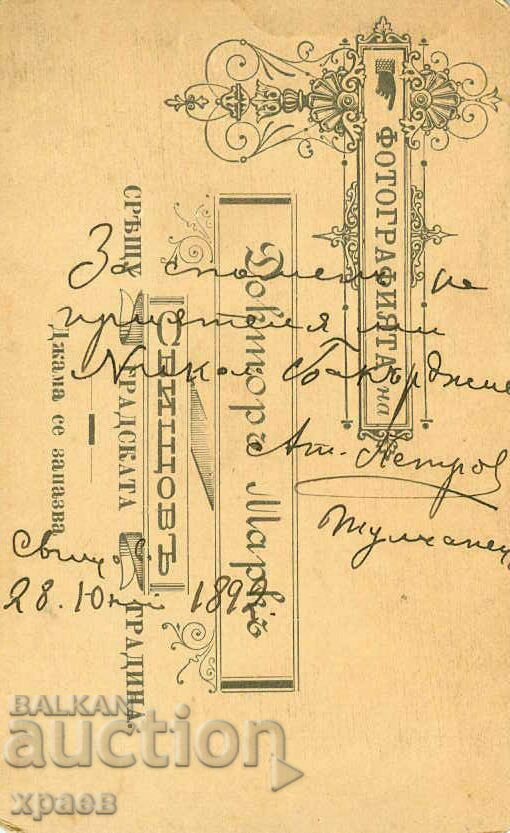 ФОТОГРАФИЯТА на
Докторъ Маркъ
СВИЩОВЪ
СРѢЩУ ГРАДСКАТА ГРАДИНА.
Джама се запазва
За споменъ на
приятеля ми
Никола Бакърджие
Ат. Петров
Свищов
28. Юний 1892
BALKAN
auction
храев